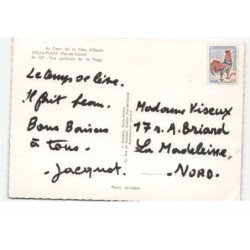 Au Cœur de la Côte d'Opale
STELLA-PLAGE (Pas-de-Calais)
Vue générale de la Plage
Le temps
Il fait beau.
Bons Baisers
à tous.
Jacquot.
Madame Viseux
17 r. A. Briand
La Madeleine
NORD.
Photo véritable